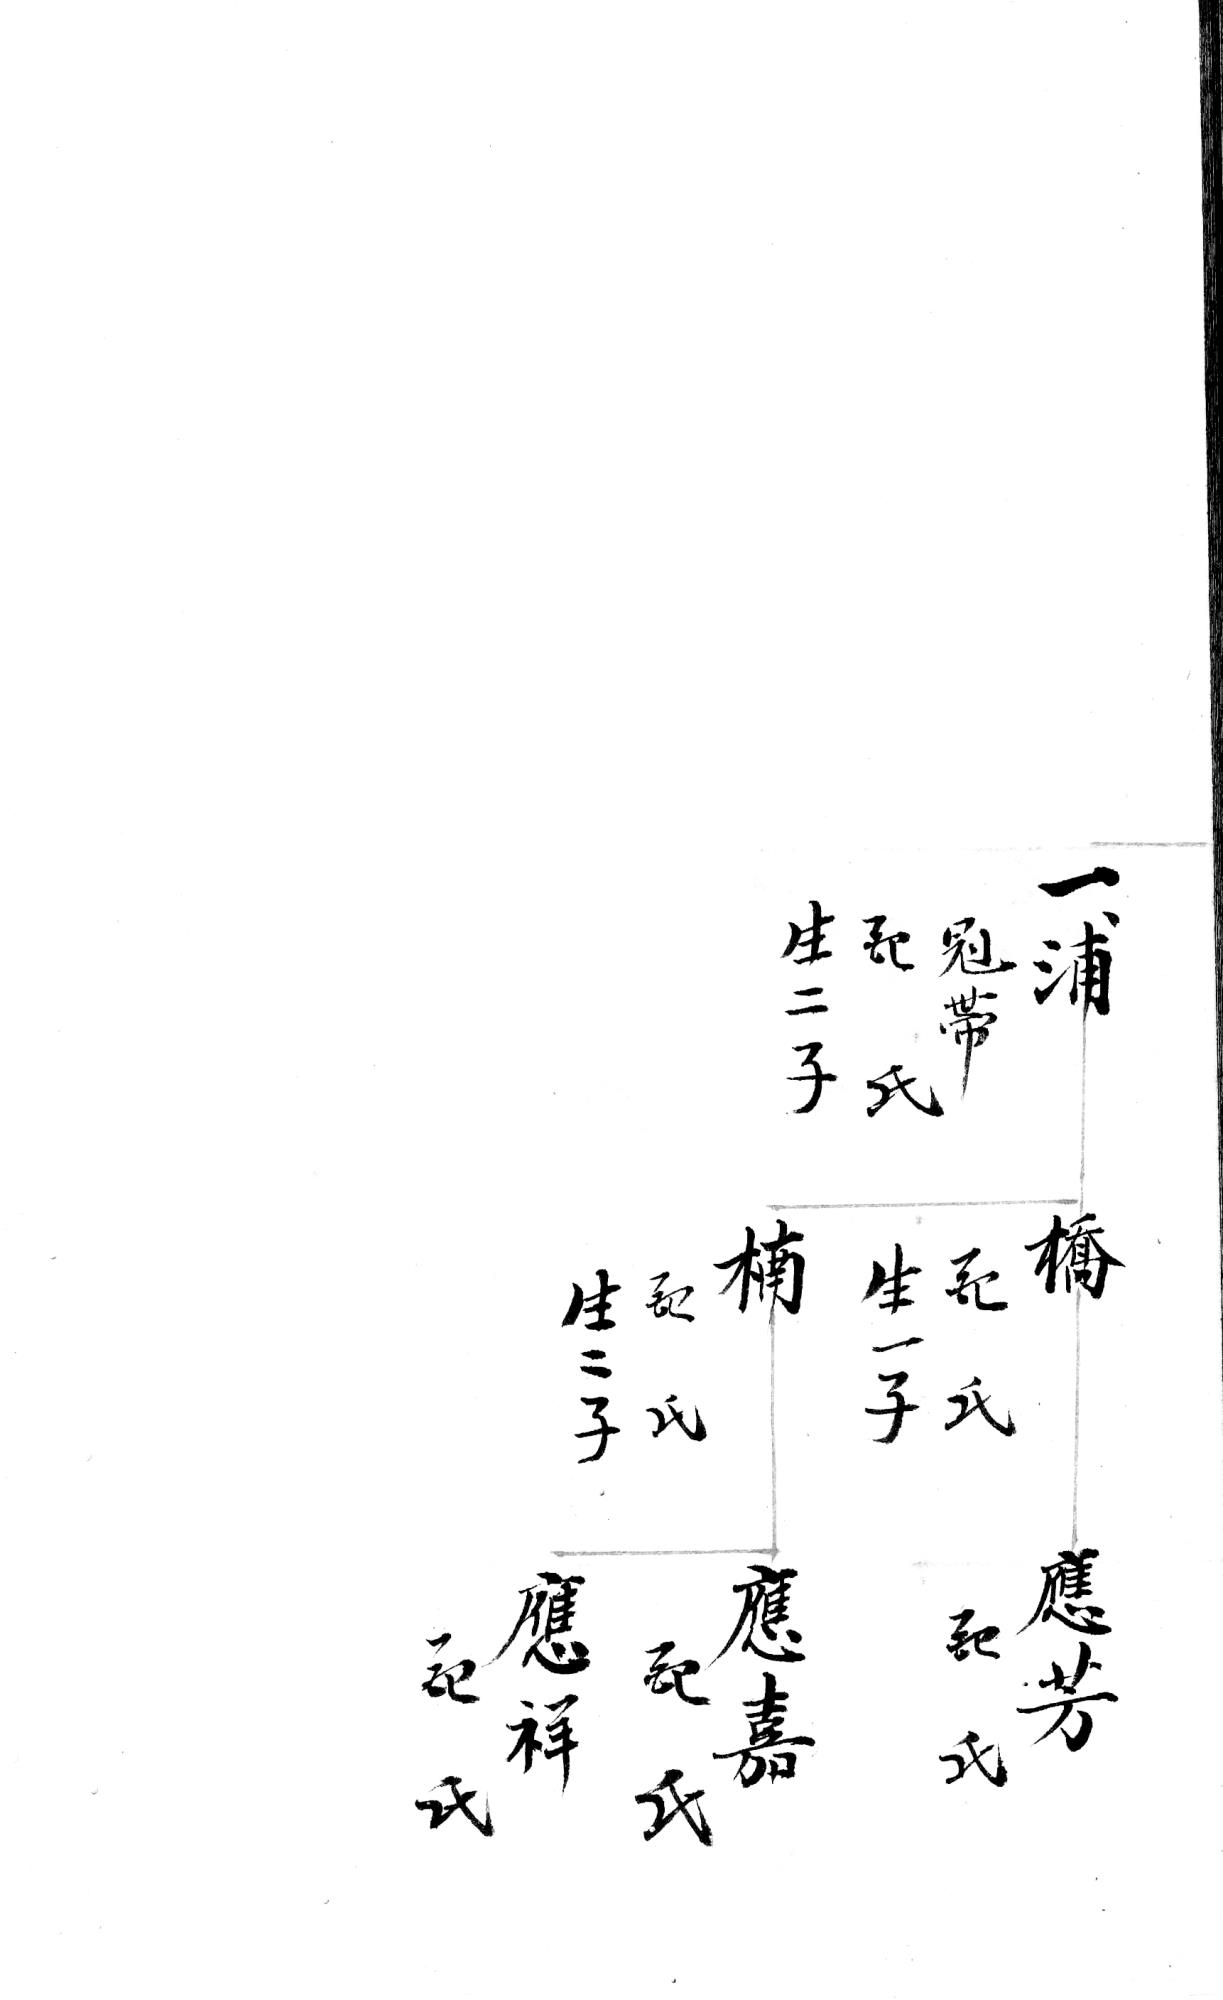 一浦
冠帶
配 氏
生二子
橋
配 氏
生一子
楠
配 氏
生二子
應芳
配 氏
應嘉
配 氏
應祥
配 氏